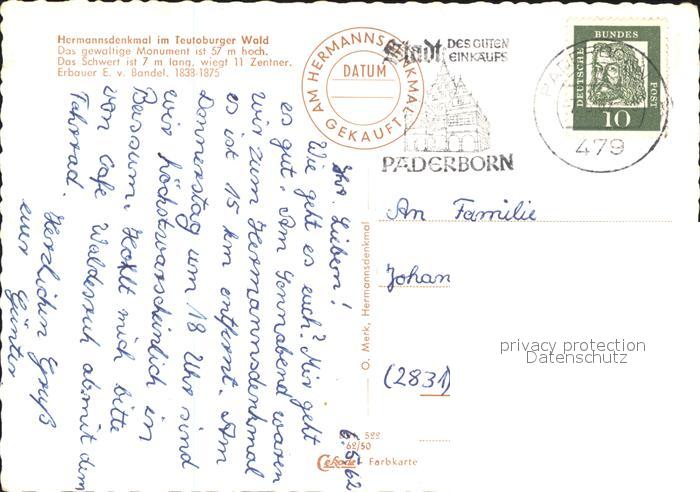 Hermannsdenkmal im Teutoburger Wald
Das gewaltige Monument ist 57 m hoch.
Das Schwert ist 7 m lang, wiegt 11 Zentner.
Erbauer E. v. Bandel. 1838-1875
AM HERMANNSDENKMAL GEKAUFT
DATUM
Stadt DES GUTEN
EINKAUFS
PADERBORN
479
DEUTSCHE BUNDESPOST
10
6.5.62
Ihr Lieben!
Wie geht es euch? Mir geht
es gut. Am Sonnabend waren
wir zum Hermannsdenkmal
es ist 15 km entfernt. Am
Donnerstag um 18 Uhr sind
wir höchstwarscheinlich in
Bassum. Hohlt mich bitte
von Cafe Waldesruh ab mit dem
Fahrrad.
Herzlichen Gruß
euer Günter
An Familie
Johan
(2831)
O. Merk, Hermannsdenkmal
522
62/50
Cekade Farbkarte
privacy protection
Datenschutz